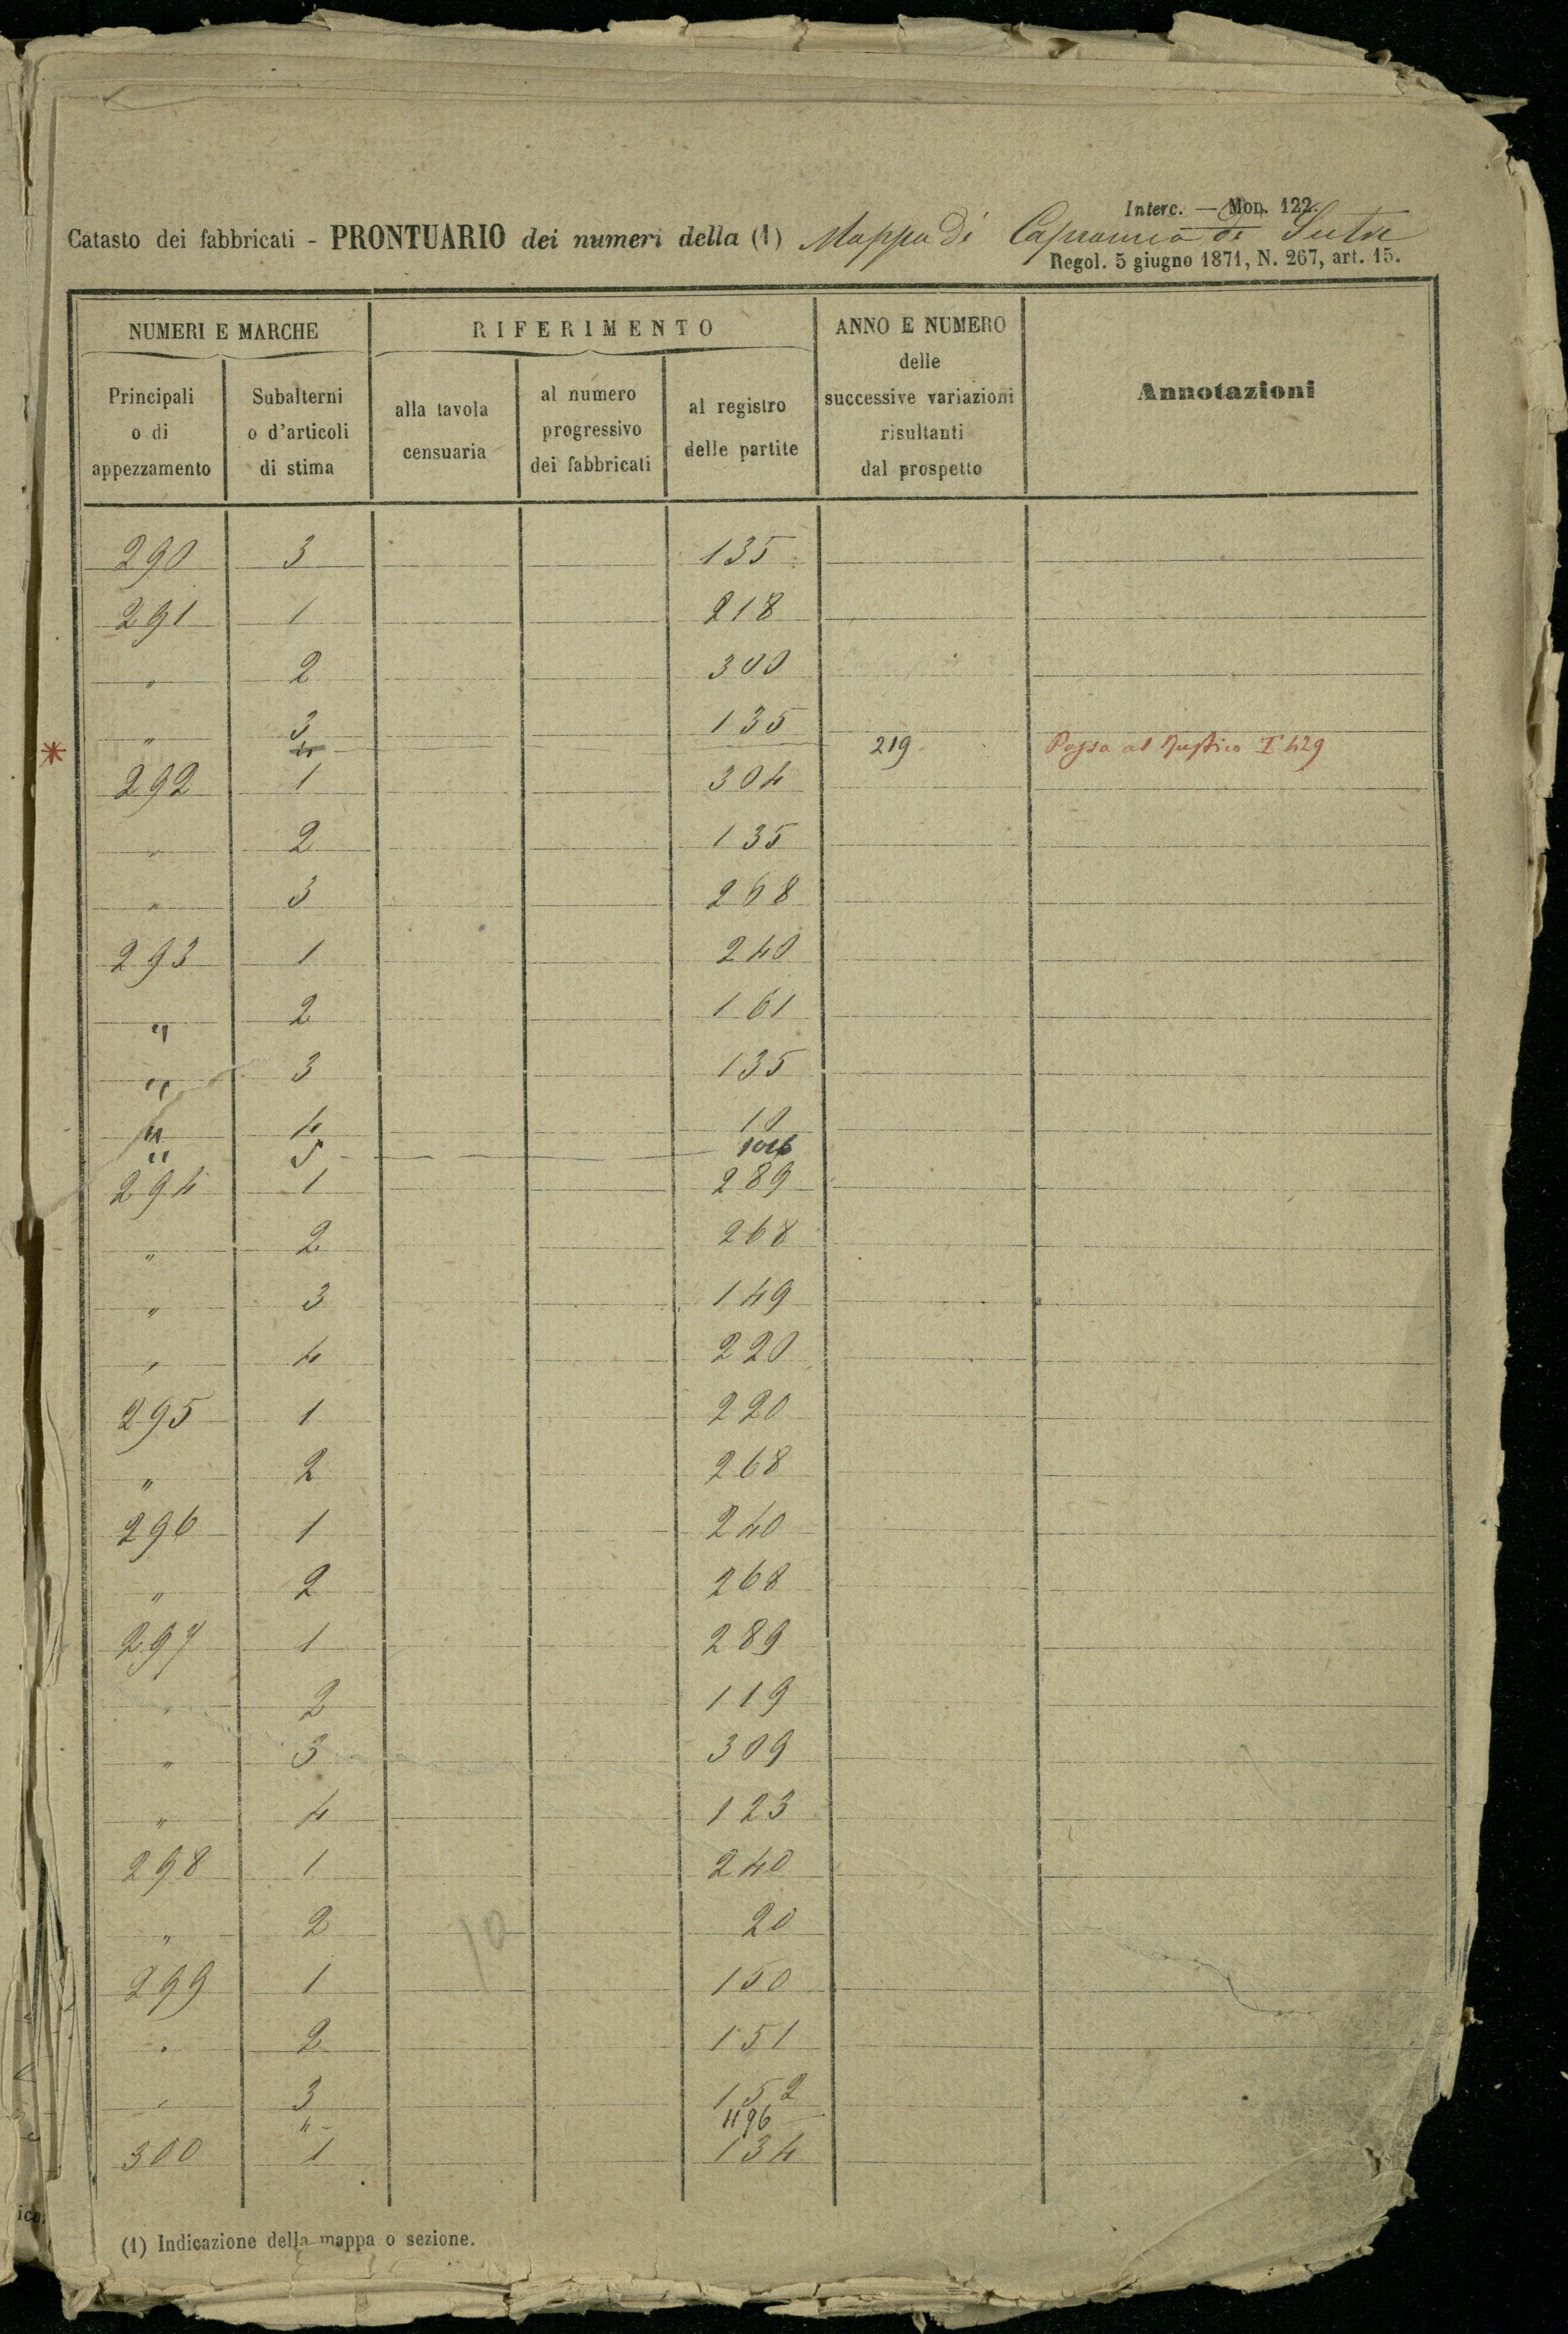 Interc. — Mod. 122.
Catasto dei fabbricati - PRONTUARIO dei numeri della (1) Mappa di Capranica di Sutri
Regol. 5 giugno 1871, N. 267, art. 15.
NUMERI E MARCHE RIFERIMENTO ANNO E NUMERO delle successive variazioni risultanti dal prospetto Annotazioni
Principali o di appezzamento Subalterni o d'articoli di stima alla tavola censuaria al numero progressivo dei fabbricati al registro delle partite
290 3 135
291 1 218
" 2 300
" 3 135
* 4 219 Passa al Rustico T 429
292 1 304
" 2 135
" 3 268
293 1 240
" 2 161
" 3 135
" 4 10
" 5
294 1 289
" 2 268
" 3 149
" 4 220
295 1 220
" 2 268
296 1 240
" 2 268
297 1 289
" 2 119
" 3 309
" 4 123
298 1 240
" 2 20
10
299 1 150
" 2 151
" 3 152
" 1196
300 1 134
(1) Indicazione della mappa o sezione.
ica.